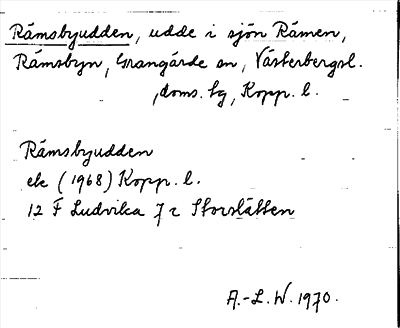 Råmsbyudden, udde i sjön Råmen,
Råmsbyn, Grangärde sn, Västerbergsl.
doms. tg, Kopp. l.
Råmsbyudden
ek (1968) Kopp. l.
12 F Ludvika 7 c Storslätten
A.-L. W. 1970.